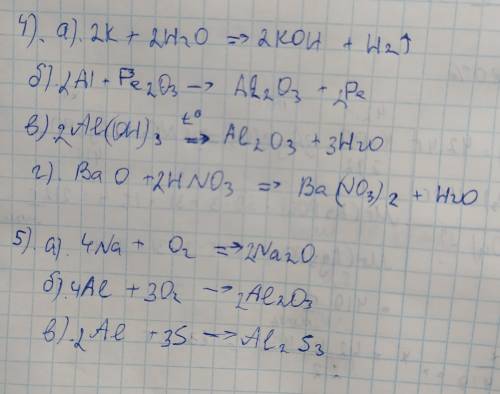 4). а). 2K + 2H2O => 2KOH + H2↑
б). 2Al + Fe2O3 -> Al2O3 + 2Fe
в). 2Al(OH)3 t°=> Al2O3 + 3H2O
г). BaO + 2HNO3 => Ba(NO3)2 + H2O
5). а). 4Na + O2 => 2Na2O
б). 4Al + 3O2 -> 2Al2O3
в). 2Al + 3S -> Al2S3